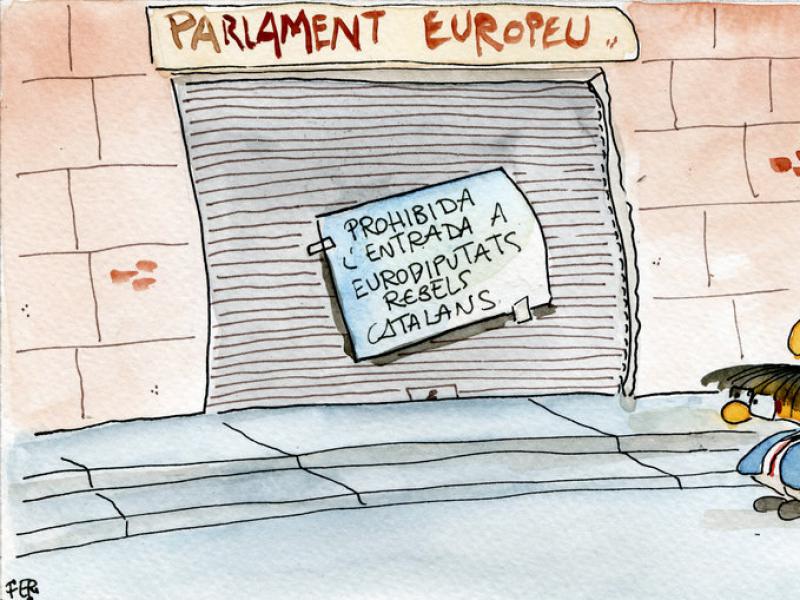 PARLAMENT EUROPEU..
PROHIBIDA
L'ENTRADA A
EURODIPUTATS
REBELS
CATALANS.
FER